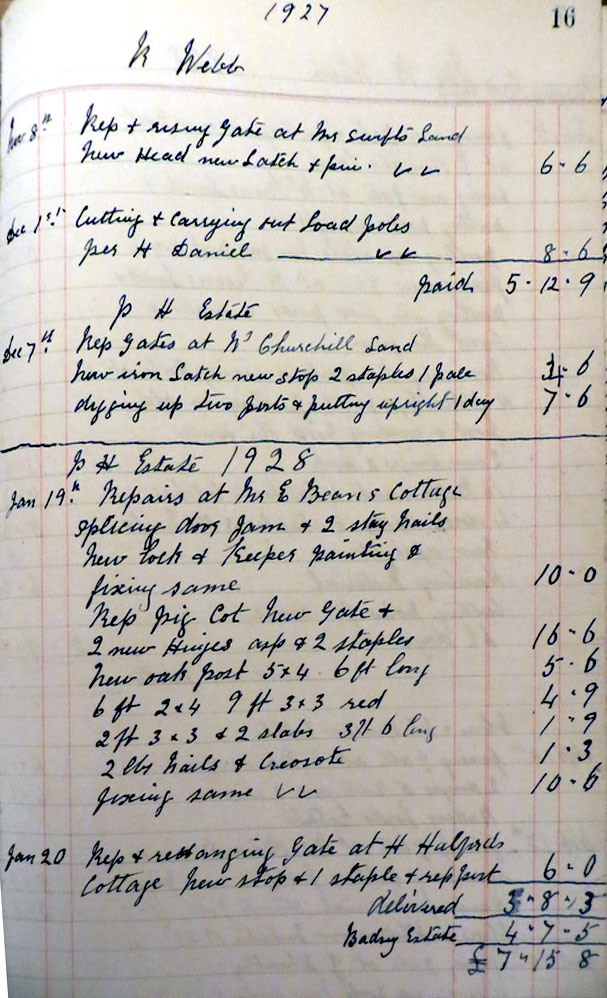 1927
16
Webb
Nov 8th Rep & rising Gate at Mr Swifts Land
New Head new Latch & pin. 6-6
Dec 1st Cutting & Carrying out Load poles
per H Daniel 8-6
paid 5-12-9
P H Estate
Dec 7th Rep Gates at W Churchill Land
New iron Latch new stop 2 staples 1 pale 6
digging up two posts & putting upright 1 day 7-6
P H Estate 1928
Jan 19th Repairs at Mr E Beans Cottage
splicing door Jam & 2 stay nails
New lock & Keeper painting &
fixing same 10-0
Rep pig Cot New Gate &
2 new Hinges asp & 2 staples 16-6
New oak post 5x4 6 ft long 5-6
6 ft 2x4 9 ft 3x3 red 4-9
2 ft 3x3 & 2 slabs 3 ft 6 long 1-9
2 lbs Nails & Creosote 1-3
fixing same 10-6
Jan 20 Rep & rehanging Gate at H Halfords
Cottage New stop & 1 staple & rep post 6-0
delivered 3-8-3
Badsey Estate 4-7-5
£ 7-15 8